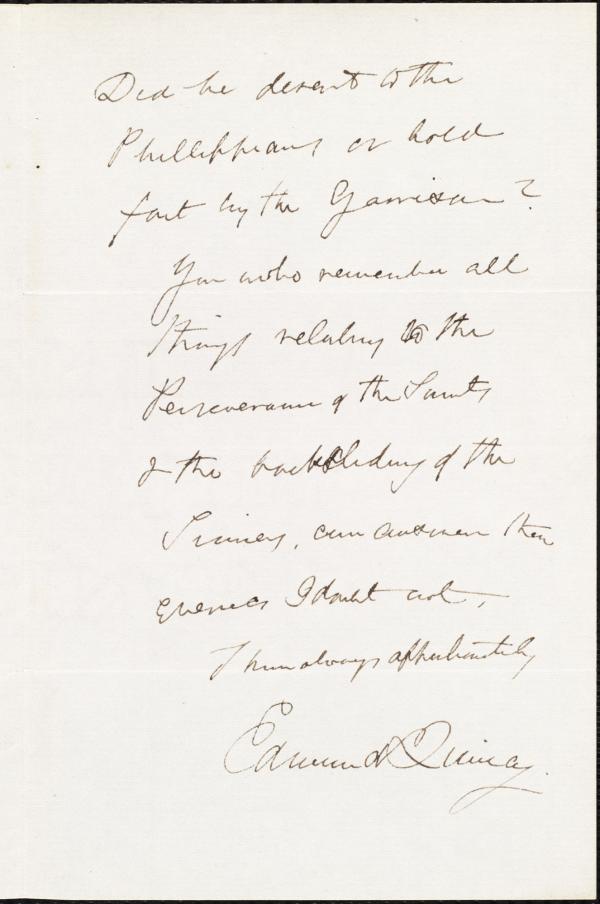 Did he desert to the
Phillippians or hold
fast by the Garrison?
You who remember all
things relating to the
Perseverance of the Saints
& the backsliding of the
Sinners, can answer these
queries I doubt not.
Thine always affectionately
Edmund Quincy.